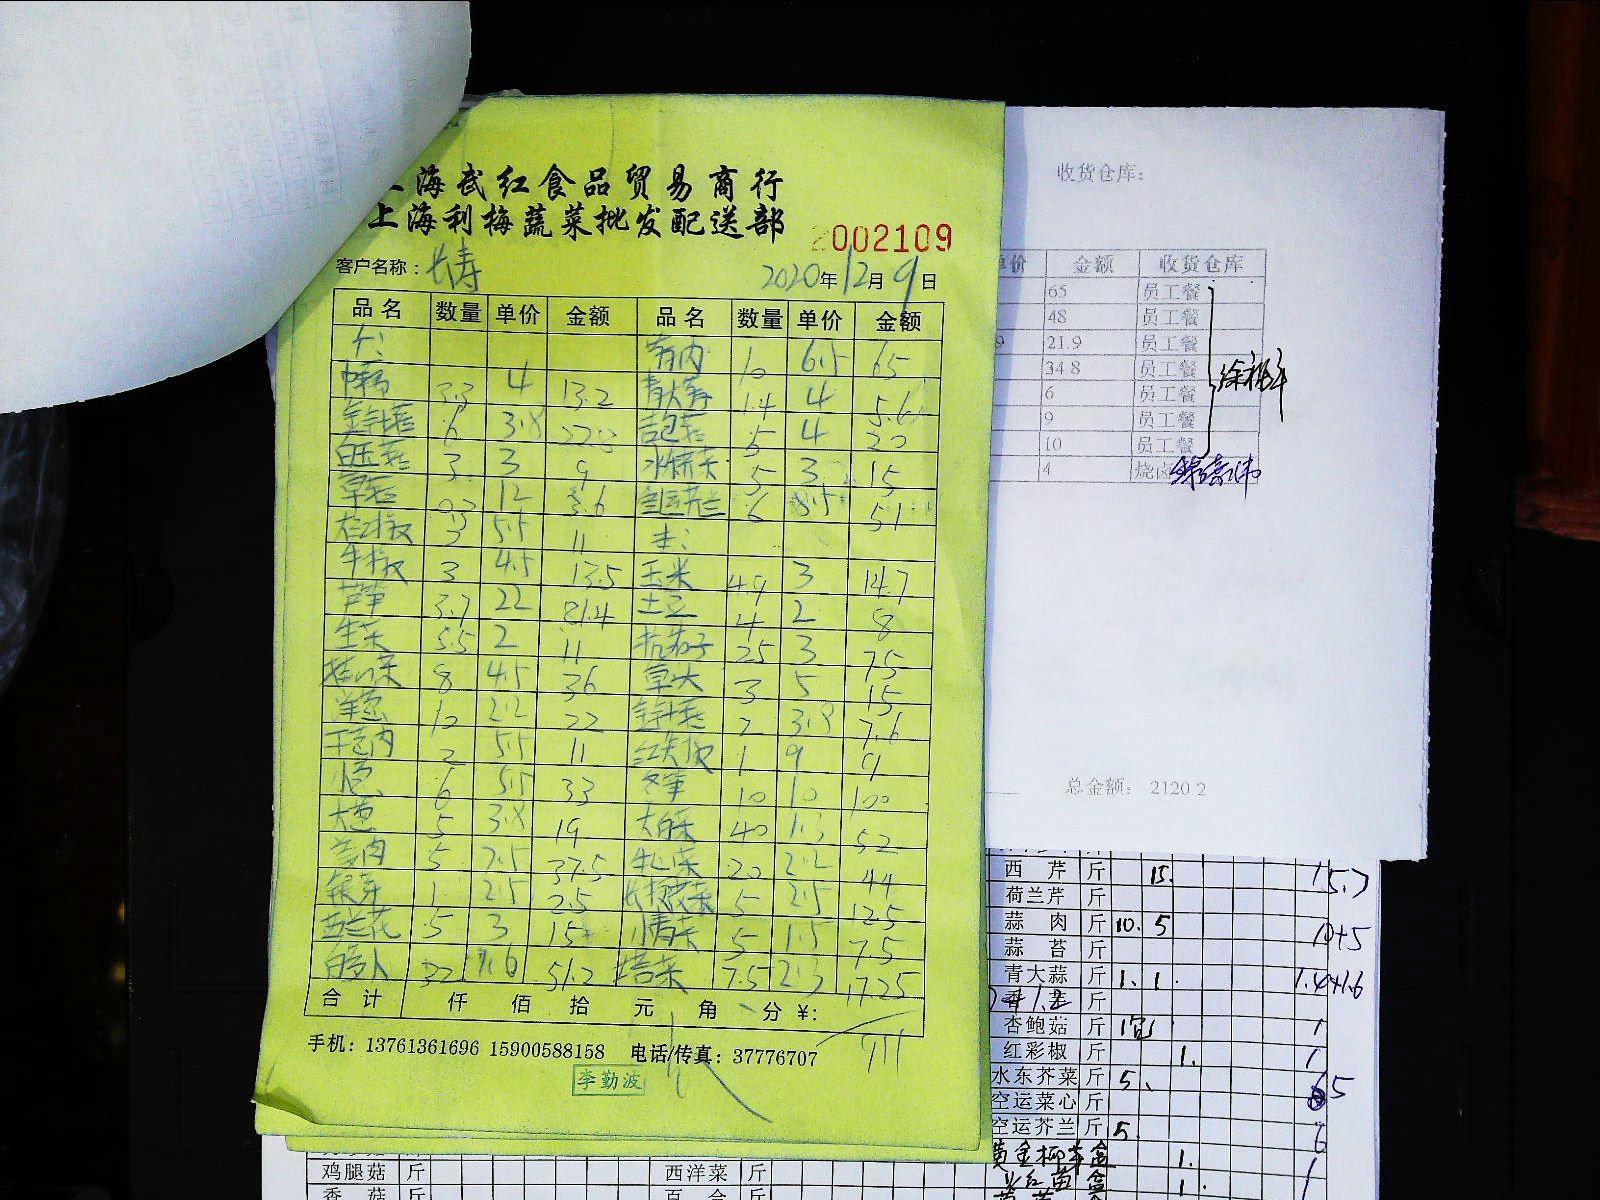 上海武红食品贸易商行
上海利梅蔬菜批发配送部
2002109
客户名称：长寿 2020年12月9日
品名 数量 单价 金额 品名 数量 单价 金额
10 6.5 65
3.3 4 13.2 青大蒜 1.4 4 5.6
金针菇 6 3.8 22.8 5 4 20
白玉菇 3 3 9 水东芥菜 5 3 15
草菇 0.3 12 3.6 空运芥兰 6 8.5 51
5.5 11
牛角椒 3 4.5 13.5 玉米 4.9 3 14.7
芦笋 3.7 22 81.4 土豆 4 2 8
生菜 5.5 2 11 杭茄子 25 3 75
8 4.5 36 草头 3 5 15
洋葱 10 2.2 22 金针菇 2 3.8 7.6
干葱肉 2 5.5 11 红尖椒 1 9 9
小葱 6 5.5 33 冬笋 10 10 100
大葱 5 3.8 19 大白菜 40 1.3 52
姜肉 5 7.5 37.5 牛心菜 20 2.2 44
银芽 1 2.5 2.5 5 2.5 12.5
西兰花 5 3 15 小青菜 5 1.5 7.5
白萝卜 32 1.6 51.2 塔菜 7.5 2.3 17.25
合计 仟 佰 拾 元 角 分 ¥:
911
手机：13761361696 15900588158 电话/传真：37776707
李勤波
收货仓库：
单价 金额 收货仓库
65 员工餐
48 员工餐
9 21.9 员工餐
34.8 员工餐
6 员工餐
9 员工餐
10 员工餐
4 烧卤
总金额： 2120.2
西芹 斤 15. 15.7
荷兰芹 斤
蒜肉 斤 10. 5 10+5
蒜苔 斤
青大蒜 斤 1. 1. 1.4+1.6
斤
杏鲍菇 斤 1包 1
红彩椒 斤 1. 1
水东芥菜 斤 5、 5
空运菜心 斤
空运芥兰 斤 5. 6
黄金柳芽盒 1. 1
火红苗盒 1. 1
鸡腿菇 斤 西洋菜 斤
香菇 斤 百合 斤